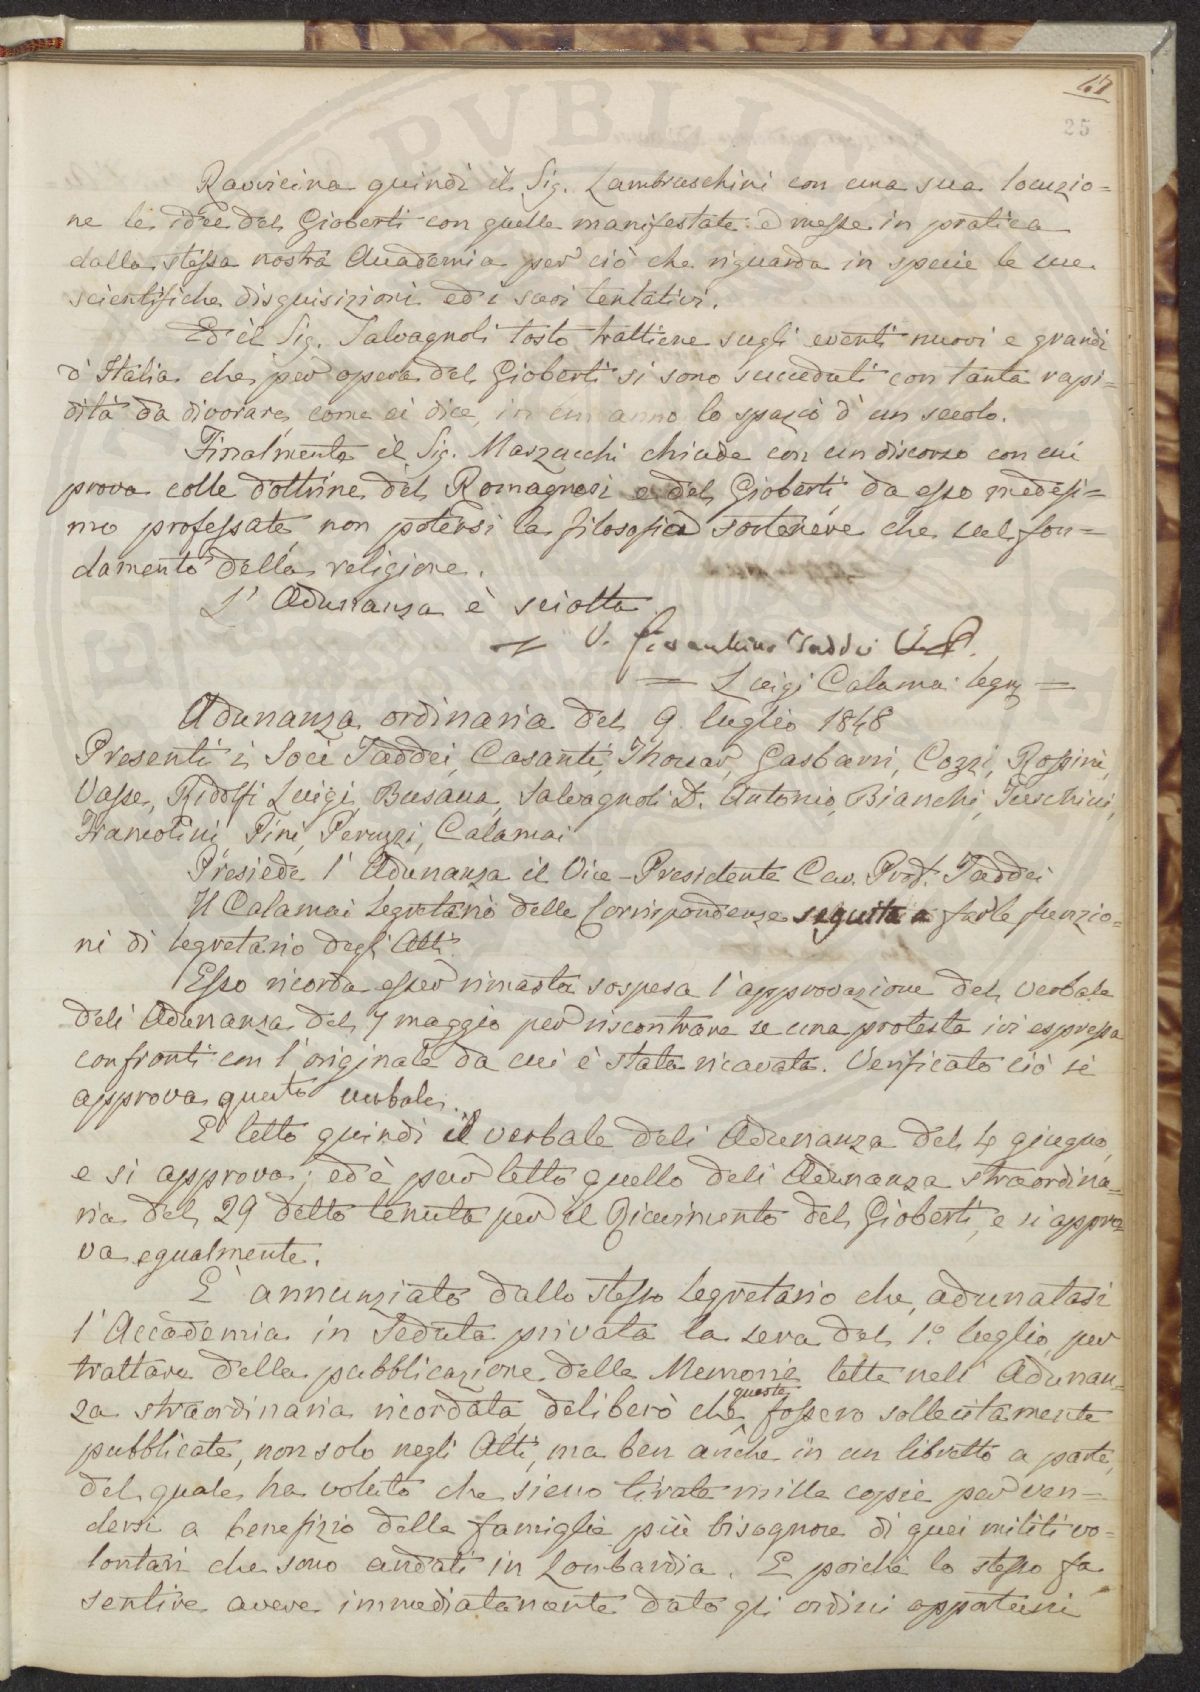 47
25
Ravvicina quindi il Sig. Lambruschini con una sua locuzio=
ne le idee del Gioberti con quelle manifestate e messe in pratica
dalla stessa nostra Accademia per ciò che riguarda in specie le sue
scientifiche disquisizioni ed i suoi tentativi.
Ed il Sig. Salvagnoli tosto trattiene sugli eventi nuovi e grandi
d'Italia che per opera del Gioberti si sono succeduti con tanta rapi=
dità da divorare, come ei dice, in un anno lo spazio d'un secolo.
Finalmente il Sig. Marzucchi chiude con un discorso con cui
prova colle dottrine del Romagnosi e del Gioberti da esso medesi=
mo professate non potersi la filosofia sostenere che sul fon=
damento della religione.
L'Adunanza è sciolta
V. Gioacchino Taddei V. P.
= Luigi Calamai Segr. =
Adunanza ordinaria del 9 luglio 1848
Presenti i Soci Taddei, Casanti, Thouar, Gasbarri, Cozzi, Rossini,
Vasse, Ridolfi Luigi, Busacca, Salvagnoli D. Antonio, Bianchi, Tuschini,
Francolini, Pini, Peruzzi, Calamai
Presiede l'Adunanza il Vice-Presidente Cav. Prof. Taddei
Il Calamai Segretario delle Corrispondenze seguita a far le funzio=
ni di Segretario degli Atti.
Esso ricorda esser rimasta sospesa l'approvazione del verbale
dell'Adunanza del 7 maggio per riscontrare se una protesta ivi espressa
confronti con l'originale da cui è stata ricavata. Verificato ciò si
approva questo verbale.
È letto quindi il verbale dell'Adunanza del 4 giugno,
e si approva; ed è pur letto quello dell'Adunanza straordina=
ria del 29 detto tenuta per il Ricevimento del Gioberti, e si appro=
va egualmente.
È annunziato dallo stesso Segretario che, adunatasi
l'Accademia in Seduta privata la sera del 1º luglio per
trattare della pubblicazione delle Memorie lette nell'Adunan=
za straordinaria ricordata, deliberò che queste fossero sollecitamente
pubblicate, non solo negli Atti, ma ben anche in un libretto a parte,
del quale ha voluto che sieno tirate mille copie per ven=
dersi a benefizio delle famiglie più bisognose di quei militi vo=
lontari che sono andati in Lombardia. E poichè lo stesso fa
sentire avere immediatamente dato gli ordini opportuni